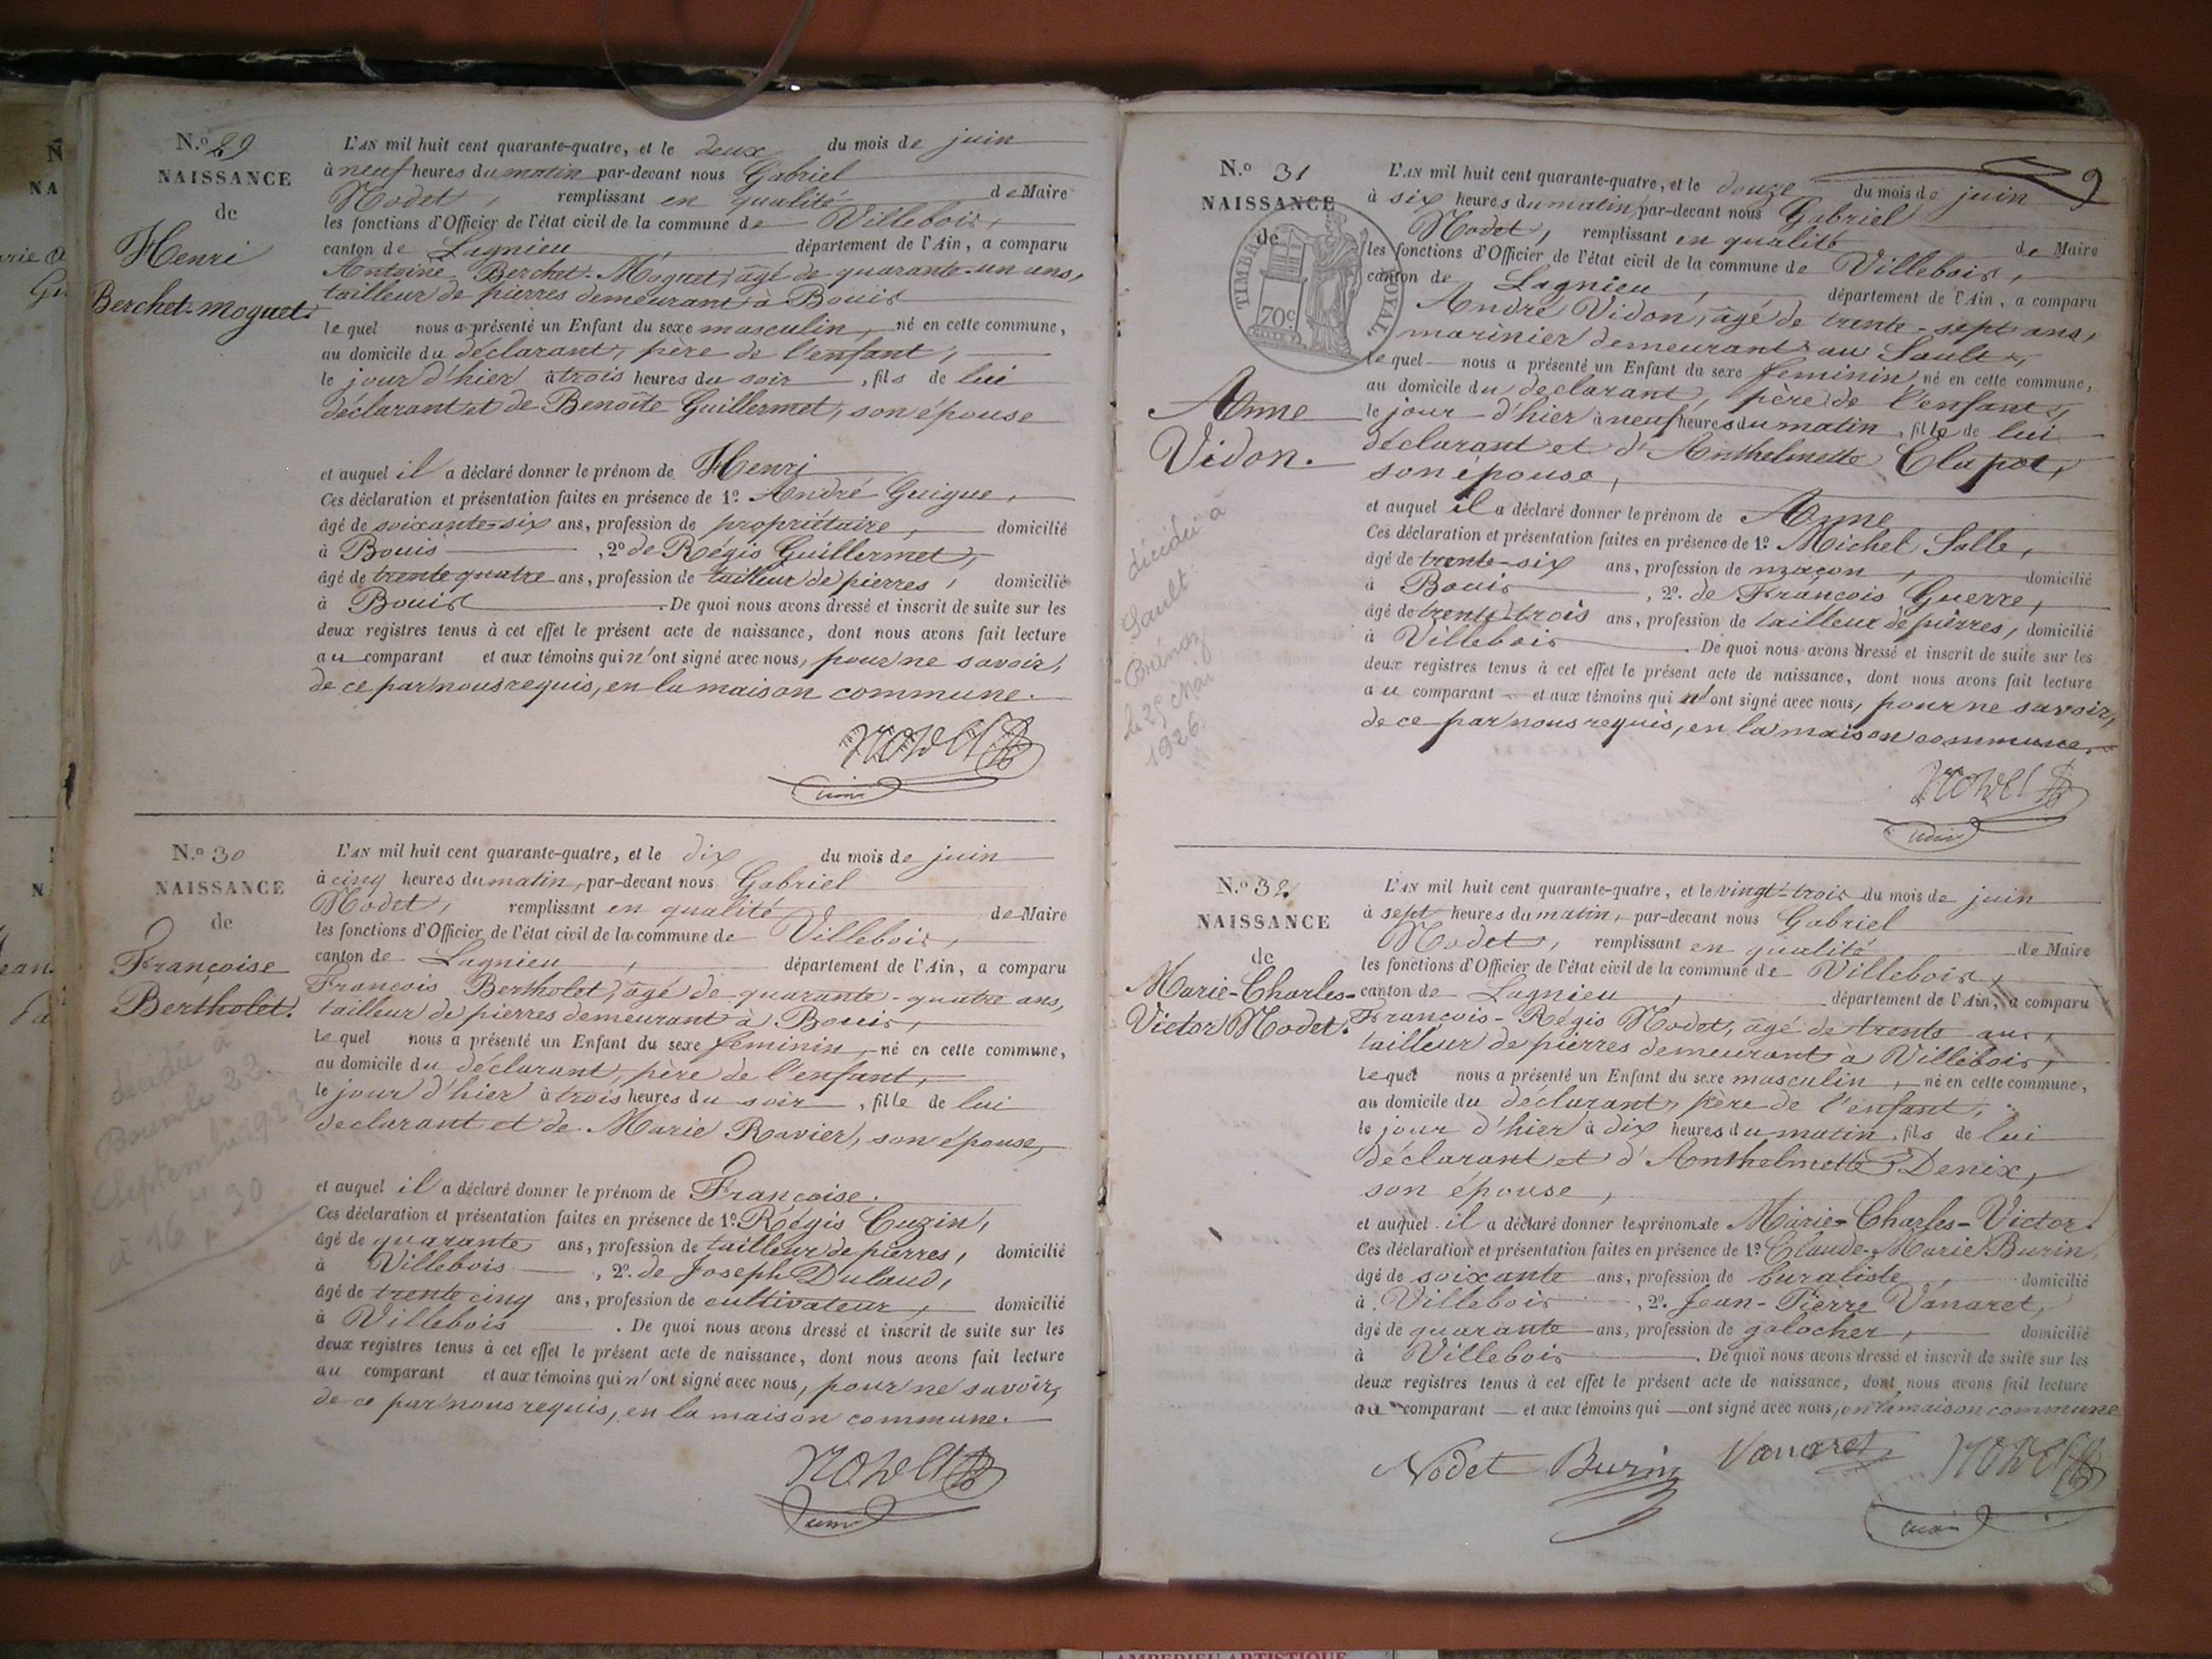 N.º 29
NAISSANCE
de
Henri
Berchet-Moguet.
L'AN mil huit cent quarante-quatre, et le deux du mois de juin
à neuf heures du matin par-devant nous Gabriel
Nodet, remplissant en qualité de Maire
les fonctions d'Officier de l'état civil de la commune de Villebois,
canton de Lagnieu, département de l'Ain, a comparu
Antoine Berchet-Moguet, âgé de quarante-un ans,
tailleur de pierres demeurant à Bouis
lequel nous a présenté un Enfant du sexe masculin, né en cette commune,
au domicile du déclarant, père de l'enfant,
le jour d'hier à trois heures du soir, fils de lui
déclarant et de Benoîte Guillermet, son épouse
et auquel il a déclaré donner le prénom de Henri
Ces déclaration et présentation faites en présence de 1º. André Guigue,
âgé de soixante-six ans, profession de propriétaire, domicilié
à Bouis, 2º de Régis Guillermet,
âgé de trente quatre ans, profession de tailleur de pierres, domicilié
à Bouis. De quoi nous avons dressé et inscrit de suite sur les
deux registres tenus à cet effet le présent acte de naissance, dont nous avons fait lecture
au comparant et aux témoins qui n'ont signé avec nous, pour ne savoir,
de ce par nous requis, en la maison commune.
Nodet
N.º 30
NAISSANCE
de
Françoise
Bertholet.
décédée à
Bouis le 22
Septembre 1923
à 16 h 30
L'AN mil huit cent quarante-quatre, et le dix du mois de juin
à cinq heures du matin, par-devant nous Gabriel
Nodet, remplissant en qualité de Maire
les fonctions d'Officier de l'état civil de la commune de Villebois,
canton de Lagnieu, département de l'Ain, a comparu
François Bertholet, âgé de quarante-quatre ans,
tailleur de pierres demeurant à Bouis,
lequel nous a présenté un Enfant du sexe féminin, né en cette commune,
au domicile du déclarant, père de l'enfant,
le jour d'hier à trois heures du soir, fille de lui
declarant et de Marie Ravier, son épouse,
et auquel il a déclaré donner le prénom de Françoise.
Ces déclaration et présentation faites en présence de 1º. Régis Cuzin,
âgé de quarante ans, profession de tailleur de pierres, domicilié
à Villebois, 2º. de Joseph Dulaud,
âgé de trente cinq ans, profession de cultivateur, domicilié
à Villebois. De quoi nous avons dressé et inscrit de suite sur les
deux registres tenus à cet effet le présent acte de naissance, dont nous avons fait lecture
au comparant et aux témoins qui n'ont signé avec nous, pour ne savoir,
de ce par nous requis, en la maison commune.
Nodet
9
N.º 31
NAISSANCE
de
TIMBRE ROYAL
70c
Anne
Vidon.
décédée à
Sault
Brénaz
le 25 Mai
1926.
L'AN mil huit cent quarante-quatre, et le douze du mois de juin
à six heures du matin par-devant nous Gabriel
Nodet, remplissant en qualité de Maire
les fonctions d'Officier de l'état civil de la commune de Villebois,
canton de Lagnieu, département de l'Ain, a comparu
André Vidon, âgé de trente-sept ans,
marinier demeurant au Sault,
lequel nous a présenté un Enfant du sexe féminin, né en cette commune,
au domicile du declarant, père de l'enfant,
le jour d'hier à neuf heures du matin, fille de lui
déclarant et d'Anthelmette Clapot,
son épouse,
et auquel il a déclaré donner le prénom de Anne
Ces déclaration et présentation faites en présence de 1º. Michel Salle,
âgé de trente-six ans, profession de maçon, domicilié
à Bouis, 2º. de François Guerre,
âgé de trente-trois ans, profession de tailleur de pierres, domicilié
à Villebois. De quoi nous avons dressé et inscrit de suite sur les
deux registres tenus à cet effet le présent acte de naissance, dont nous avons fait lecture
au comparant et aux témoins qui n'ont signé avec nous, pour ne savoir,
de ce par nous requis, en la maison commune.
Nodet
N.º 32
NAISSANCE
de
Marie-Charles-
Victor Nodet.
L'AN mil huit cent quarante-quatre, et le vingt-trois du mois de juin
à sept heures du matin, par-devant nous Gabriel
Nodet, remplissant en qualité de Maire
les fonctions d'Officier de l'état civil de la commune de Villebois,
canton de Lagnieu, département de l'Ain, a comparu
François-Régis Nodet, âgé de trente ans,
tailleur de pierres demeurant à Villebois,
lequel nous a présenté un Enfant du sexe masculin, né en cette commune,
au domicile du déclarant, père de l'enfant,
le jour d'hier à dix heures du matin, fils de lui
déclarant et d'Anthelmette Denix,
son épouse,
et auquel il a déclaré donner les prénoms de Marie-Charles-Victor.
Ces déclaration et présentation faites en présence de 1º Claude-Marie Burin,
âgé de soixante ans, profession de buraliste, domicilié
à Villebois, 2º. Jean-Pierre Vanaret,
âgé de quarante ans, profession de galocher, domicilié
à Villebois. De quoi nous avons dressé et inscrit de suite sur les
deux registres tenus à cet effet le présent acte de naissance, dont nous avons fait lecture
au comparant et aux témoins qui ont signé avec nous, en la maison commune
Nodet Burin Vanaret Nodet
AMBERIEU ARTISTIQUE